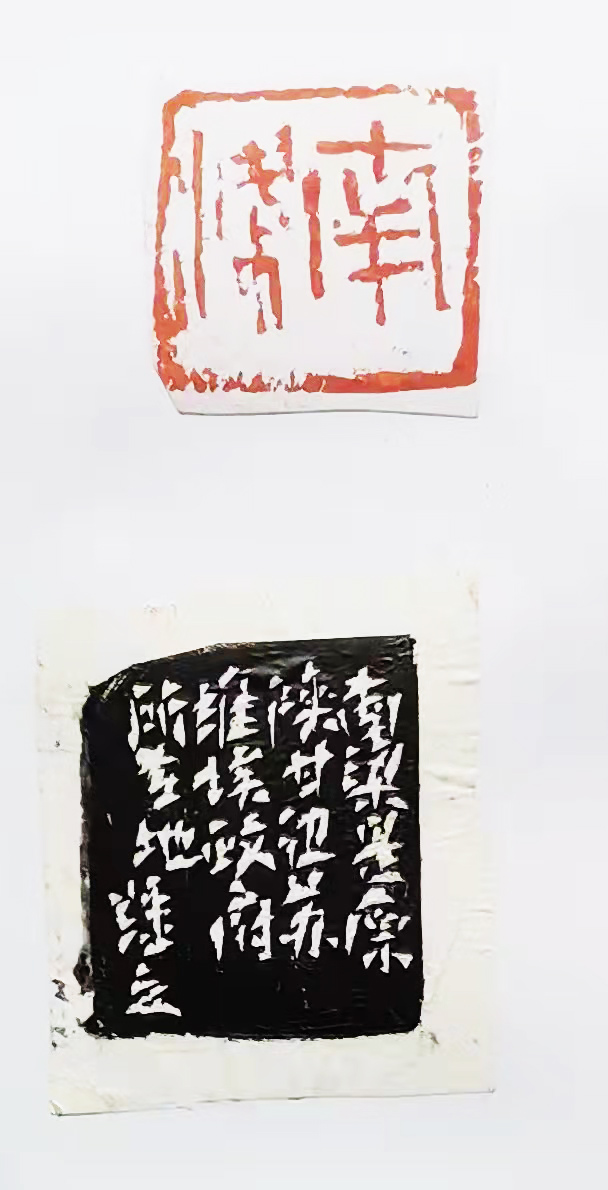 南梁
南梁是原
陕甘边苏
维埃政府
所在地